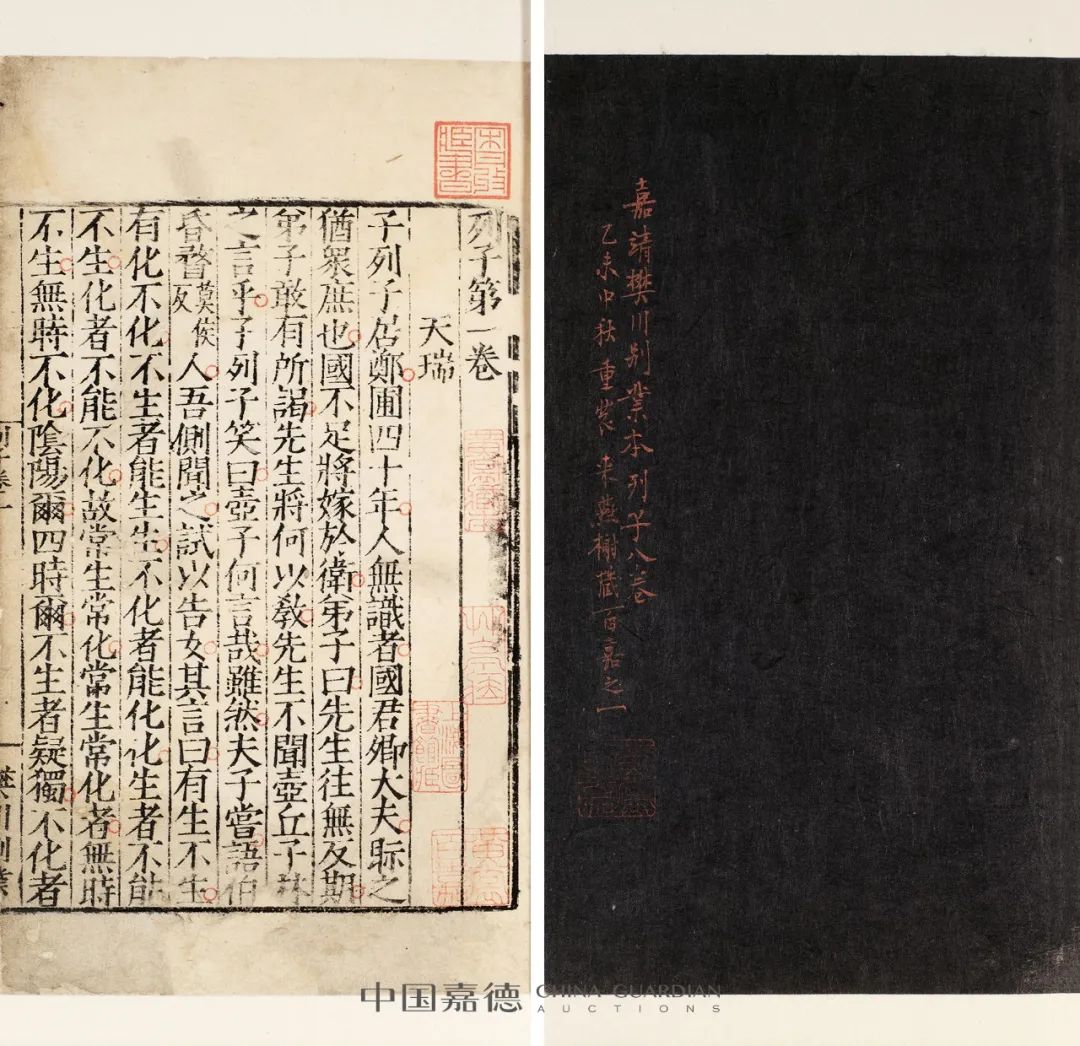 列子第一卷
天瑞
子列子居鄭圃四十年人無識者國君卿大夫眎之
猶眾庶也國不足將嫁於衛弟子曰先生往無反期
弟子敢有所謁先生將何以教先生不聞壺丘子林
之言乎子列子笑曰壺子何言哉雖然夫子嘗語伯
昏瞀莫侯反人吾側聞之試以告女其言曰有生不生
有化不化不生者能生生不化者能化化生者不能
不生化者不能不化故常生常化常生常化者無時
不生無時不化陰陽爾四時爾不生者疑獨不化者
嘉靖樊川别業本列子八卷
乙未中秋重裝来燕榭藏百嘉之一
中国嘉德 CHINA GUARDIAN
AUCTIONS